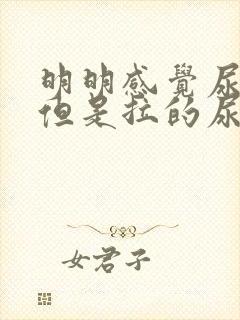 明明感覺尿
但是拉的尿
女君子